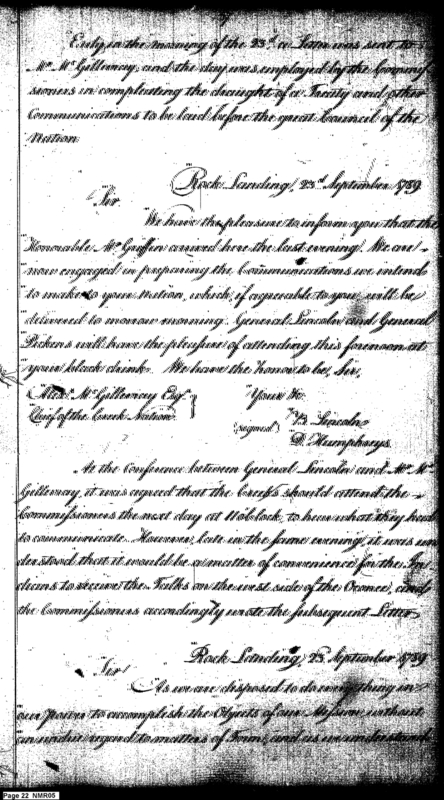 Early in the morning of the 23d a Letter was sent to
Mr. McGillivray, and the day was employed by the Commis-
sioners in compleating the draught of a Treaty and other
Communications to be laid before the great Council of the
Nation
Rock Landing, 23d September 1789
Sir
We have the pleasure to inform you that the
Honorable Mr. Griffin arrived here the last evening. We are
now engaged in preparing the Communications we intend
to make to your Nation, which, if agreeable to you, will be
delivered to morrow morning. General Lincoln and General
Pickens will have the pleasure of attending this forenoon at
your black drink. We have the honor to be, Sir,
Alexr. McGillivray Esqr. Your &c
Chief of the Creek Nation
signed B. Lincoln
D. Humphreys
At the Conference between General Lincoln and Mr. Mc
Gillivray, it was agreed that the Creeks should attend the
Commissioners the next day at to hear what they had
to communicate. However, late in the same evening, it was un
derstood that it would be a matter of convenience for the In
dians to receive the Talks on the west side of the Oconee, and
the Commissioners accordingly wrote the subsequent Letter
Rock Landing, 23 September 1789
Sir
As we are disposed to do every thing in
our power to accomplish the Objects of our Mission without
an undue regard to matters of Form, and as we understand
Page 22 NMR05